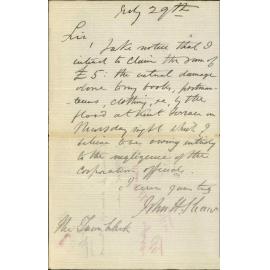 July 29th
Sir
Take notice that I
intend to claim the sum of
£5: the actual damage
done to my books, portman-
teaus, clothing, &c, by the
flood at Kent Terrace on
Thursday night which I
believe to be owing entirely
to the negligence of the
corporation officials.
I am yours truly
John H. Shaw
The Town Clerk